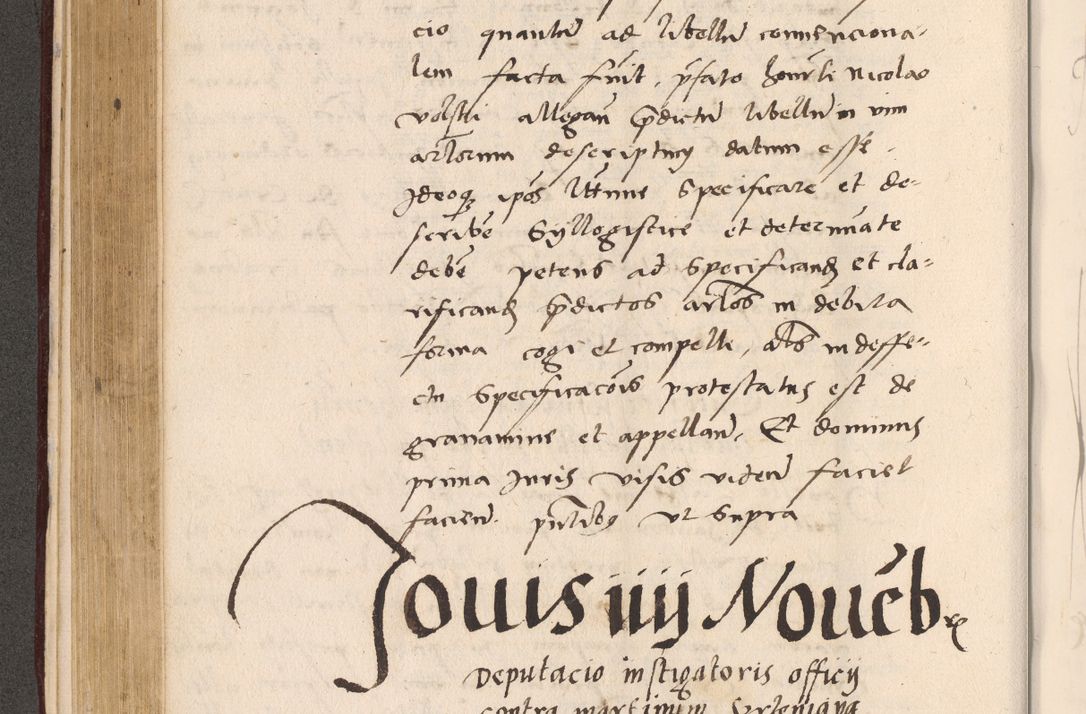 cio quantũ ad libellũ convenciona-
lem facta fuit, p̃fato honorli Nicolao
allegan p̃dictũ libellũ in vim
arlorum descriptum datum esse.
Ideoq ip̃os Specificare et de-
scribe Syllogistice et determinate
debe petens ad Specificand et cla-
rificand p̃dictos arlos in debita
forma cogi et compelli, in deffe-
ctu Specificacõis protestatus est de
gravamine et appellan. Et dominus
prima Juris visis viden faciet
facien. pñtibus ut Supra
Jovis iiij Novẽbr
Deputacio instigatoris officij
contra martinum